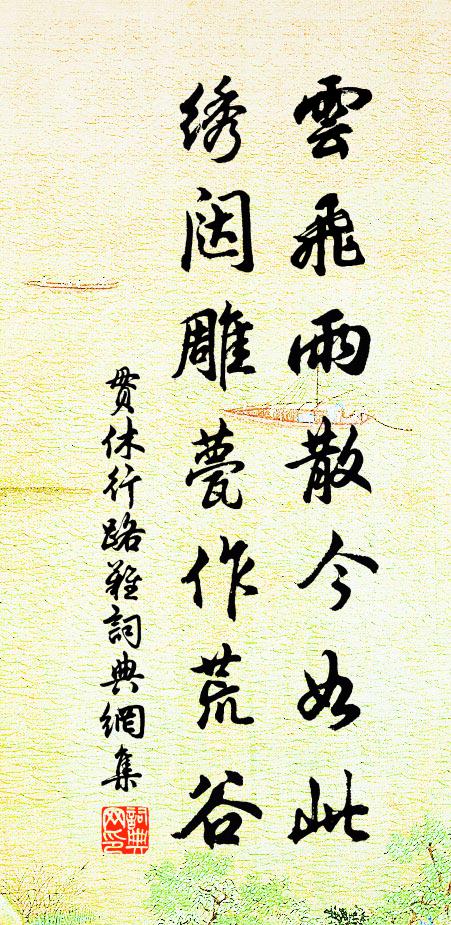 雲飛雨散今如此
绣闼雕甍作荒谷
貫休行路難詞典網集
詞典
网印